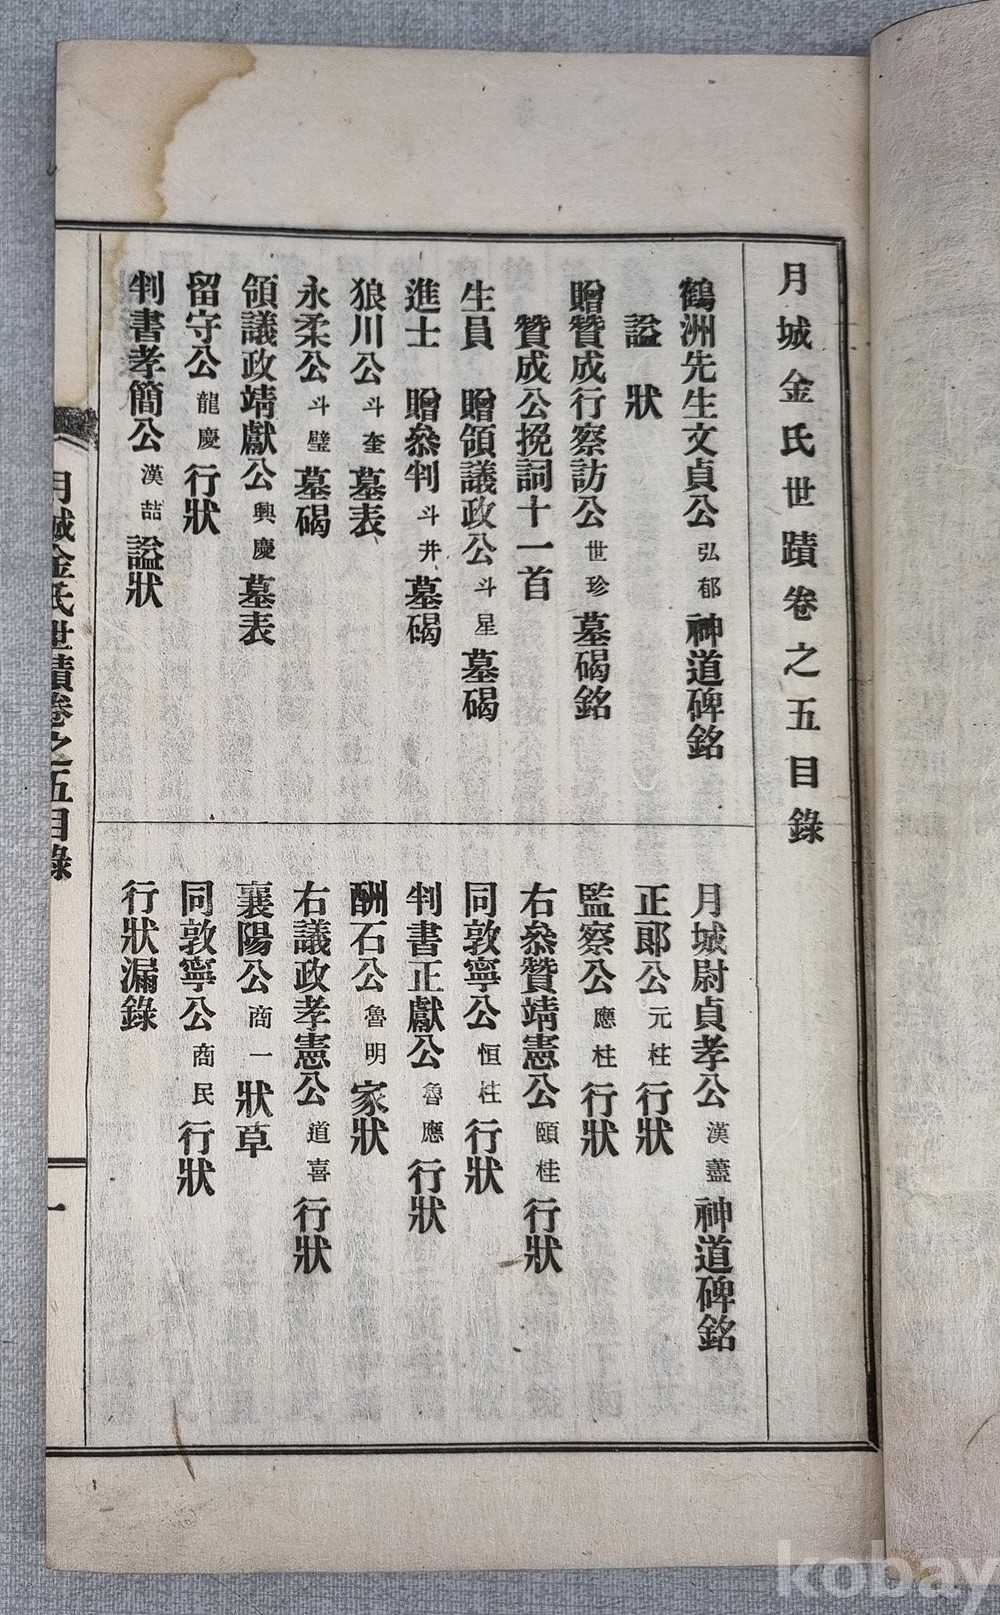 月城金氏世蹟卷之五目錄
鶴洲先生文貞公 弘郁 神道碑銘
謚狀
贈贊成行察訪公 世珍 墓碣銘
贊成公挽詞十一首
生員 贈領議政公 斗星 墓碣
進士 贈叅判 斗井 墓碣
狼川公 斗奎 墓表
永柔公 斗璧 墓碣
領議政靖獻公 興慶 墓表
留守公 龍慶 行狀
判書孝簡公 漢喆 謚狀
月城尉貞孝公 漢藎 神道碑銘
正郞公 元柱 行狀
監察公 應柱 行狀
右叅贊靖憲公 頤柱 行狀
同敦寧公 恒柱 行狀
判書正獻公 魯應 行狀
酬石公 魯明 家狀
右議政孝憲公 道喜 行狀
襄陽公 商一 狀草
同敦寧公 商民 行狀
行狀漏錄
月城金氏世蹟卷之五目錄
一
kobay